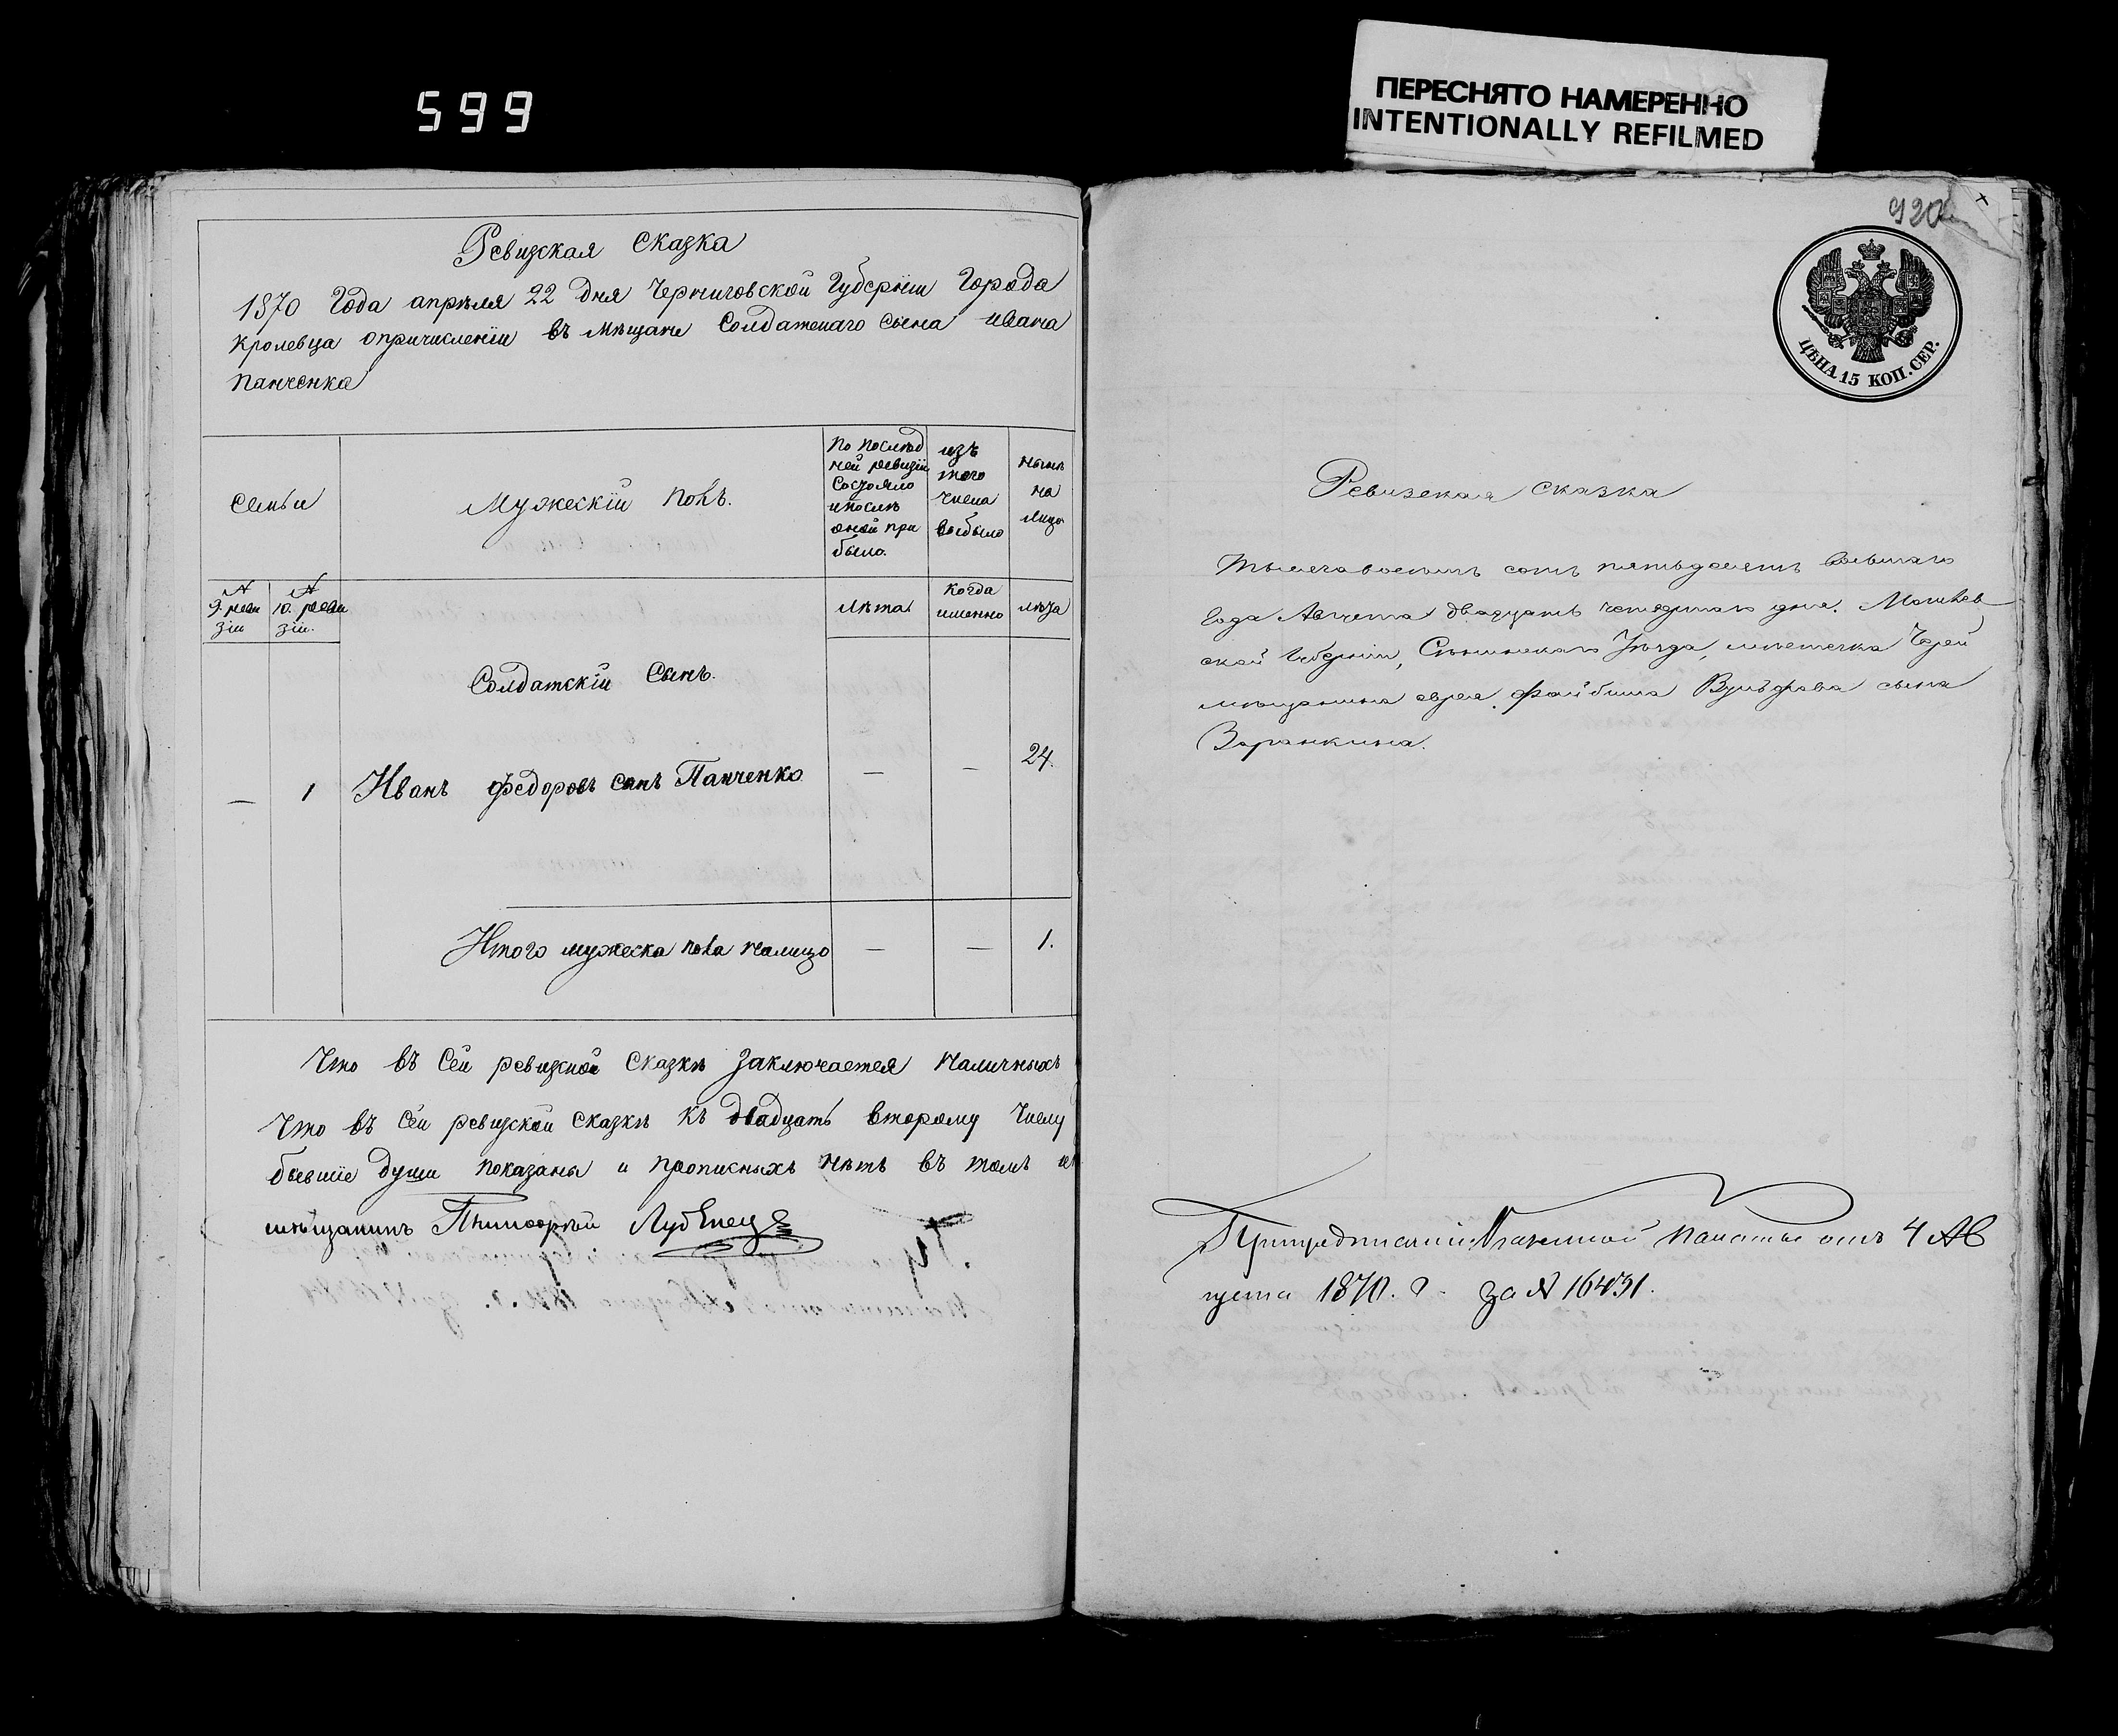 599
ПЕРЕСНЯТО НАМЕРЕННО
INTENTIONALLY REFILMED
Ревизская Сказка
1870 Года апрѣля 22 дня Черниговской Губерніи Города
Кролевца опричисленіи въ мѣщане Солдатскаго Сына ивана
Панченка
Семьи
Мужескій Полъ.
По послѣд
ней ревизіи
Состояло
ипослѣ
оной при
было.
изъ
того
числа
выбыло
нынѣ
на
лицо
№
9. реви
зіи
№
10. реви
зіи.
лѣта
Когда
именно
лѣта
Солдатскій Сынъ.
— 1 Иванъ Федоровъ сынъ Панченко — — 24.
Итого мужеска пола налицо — — 1.
Что въ Сей ревизкой Сказкѣ Заключается Наличныхъ
Что въ Сей ревизской Сказкѣ Къ двадцать второму Числу
бывшіе души показаны и прописныхъ нѣтъ въ томъ и
мѣщанинъ
920
ЦѢНА 15 КОП. СЕР.
Ревизская сказка
Тысяча восемь сотъ пятьдесятъ Восьмаго
Года Августа двадцать четвертаго дня. Могилев
ской Губерніи, Сѣннинскаго Уѣзда, мѣстечка Черей
мѣщанина еврея Файбиша Вульфова сына
Заранкина.
При предписаніи Казенной Палаты отъ 4 Ав
густа 1870. г. за № 16431.